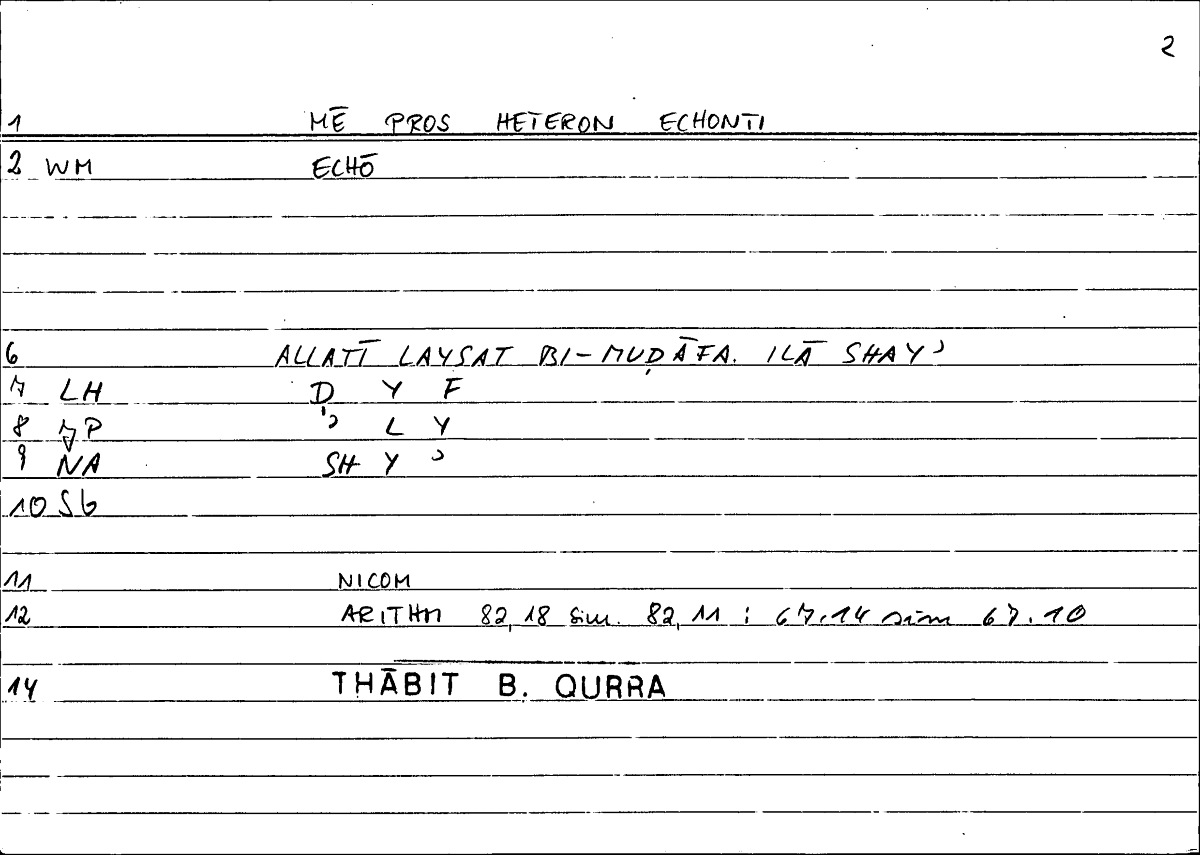 2
1 MĒ PROS HETERON ECHONTI
2 WM ECHŌ
6 ALLATĪ LAYSAT BI-MUḌĀFA. ILĀ SHAYʾ
7 LH Ḍ Y F
8 JP ʾ L Y
9 NA SH Y ʾ
10 Sb
11 NICOM
12 ARITHM 82,18 sim. 82,11 : 67.14 sim 67.10
14 THĀBIT B. QURRA